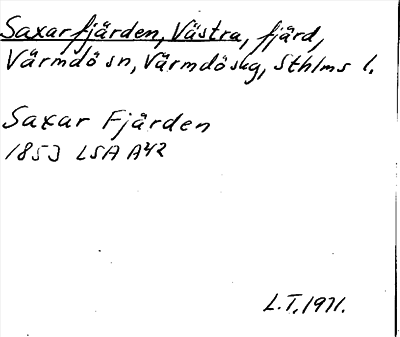 Saxarfjärden, Västra, fjärd,
Värmdö sn, Värmdö skg, Sthlms l.
Saxar Fjärden
1853 LSA A42
L.T. 1971.